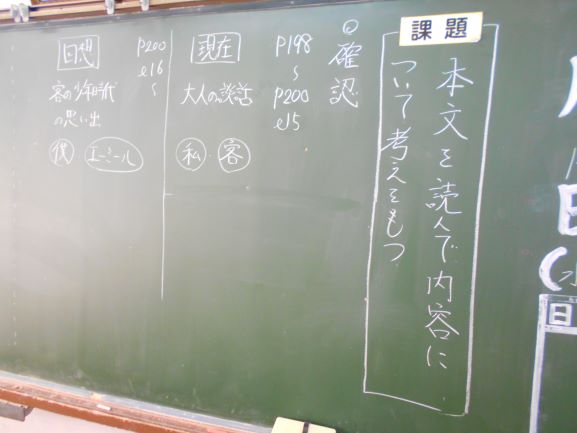 課題
本文を読んで内容に
ついて考えをもつ
◎確認
P198
〜
P200
l15
現在
大人の談話
私 客
P200
l16
〜
回想
客の少年時代
の思い出
僕 エーミール
日